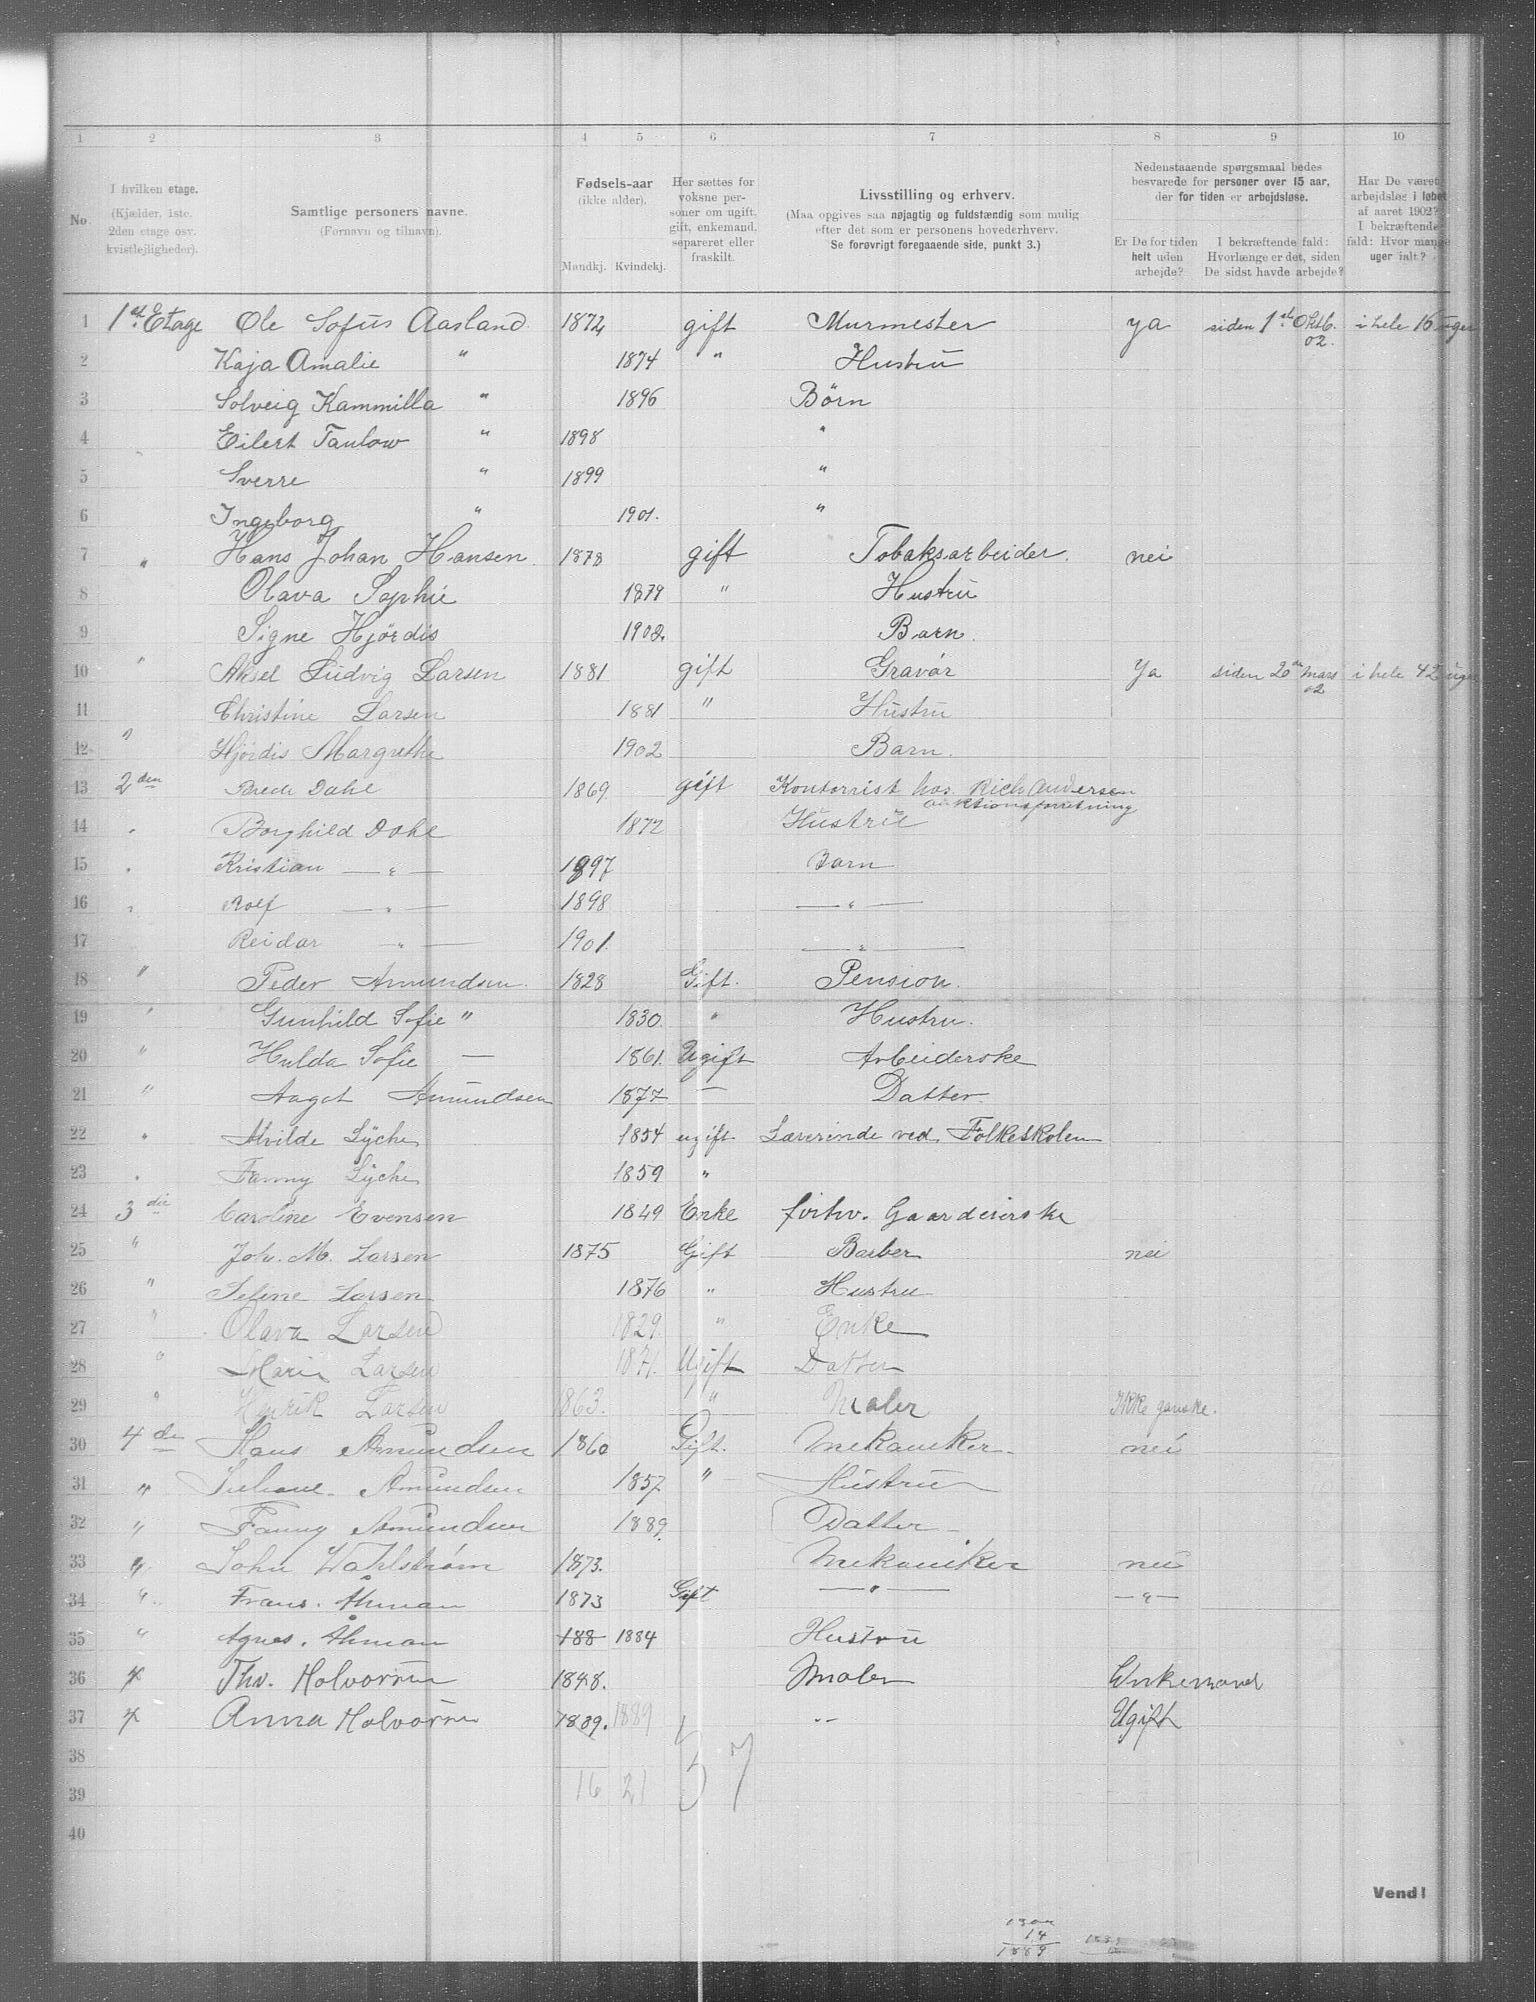 1 2 3 4 5 6 7 8 9 10
No.
I hvilken etage.
(Kjælder, 1ste.
2den etage osv.
kvistleiligheder).
Samtlige personers navne.
(Fornavn og tilnavn).
Fødsels-aar
(ikke alder).
Mandkj. Kvindekj.
Her sættes for
voksne per-
soner om ugift,
gift, enkemand,
separeret eller
fraskilt.
Livsstilling og erhverv.
(Maa opgives saa nøjagtig og fuldstændig som mulig
efter det som er personens hovederhverv.
Se forøvrigt foregaaende side, punkt 3.)
Nedenstaaende spørgsmaal bedes
besvarede for personer over 15 aar,
der for tiden er arbejdsløse.
Er De for tiden
helt uden
arbejde?
I bekræftende fald:
Hvorlænge er det, siden
De sidst havde arbejde?
Har De været
arbejdsløs i løbet
af aaret 1902?
I bekræftende
fald: Hvor mange
uger ialt?
1 1st. Etage Ole Sofus Aasland 1872 gift Murmester ya siden 1st Oktb. 02. i hele 16 uger
2 Kaja Amalie " 1874 " Hustru
3 Solveig Kammilla " 1896 Børn
4 Eilert Taulow " 1898 "
5 Sverre " 1899 "
6 Ingeborg " 1901. "
7 " Hans Johan Hansen. 1878 gift Tobaksarbeider. nei
8 Olava Sophie 1879 " Hustru
9 Signe Hjørdis 1902. Barn.
10 " Aksel Ludvig Larsen 1881 gift Gravør Ya siden 20de Mars 02 i hele 42 uger
11 Christine Larsen 1881 " Hustru
12 " Hjørdis Margrethe 1902 Barn.
13 2den Brede Dahl 1869 gift Kontorrist hos. Rich Andersen auktionsforretning
14 " Borghild Dahl 1872 Hustru
15 " Kristian — " — 1897 Barn
16 " Rolf — " — 1898 — " —
17 Reidar — " — 1901. — " —
18 " Peder Amundsen. 1828 Gift. Pension.
19 " Gunhild Sofie " 1830. " Hustru.
20 " Hulda Sofie — 1861. Ugift Arbeiderske
21 " Aagot Amundsen 1877 — Datter.
22 " Alvilde Lyche 1854 ugift. Lærerinde ved. Folkeskolen
23 " Fanny Lyche 1859 "
24 3die Caroline Evensen 1849 Enke forhv. Gaardeierske
25 " Joh. M. Larsen 1875 Gift Barber nei
26 " Seline Larsen 1876 " Hustru
27 " Olava Larsen 1829. " Enke
28 " Marie Larsen 1871. Ugift Datter
29 " Henrik Larsen 1863. " Maler Ikke ganske.
30 4de Hans Amundsen 1860 Gift. Mekaniker. nei
31 " Amundsen 1857 " Hustru
32 " Fanny Amundsen 1889. Datter
33 " John Wahlstrøm 1873. Mekaniker nei
34 " Frans. Åhman 1873 Gift — " — — " —
35 " Agnes. Åhman 188 1884 Hustru
36 4 Thv. Halvorsen 1848. Maler Enkemand
37 4 Anna Halvorsen 1889. 1889 -- Ugift
38
39 16 21 37
40
Vend!
14
1889